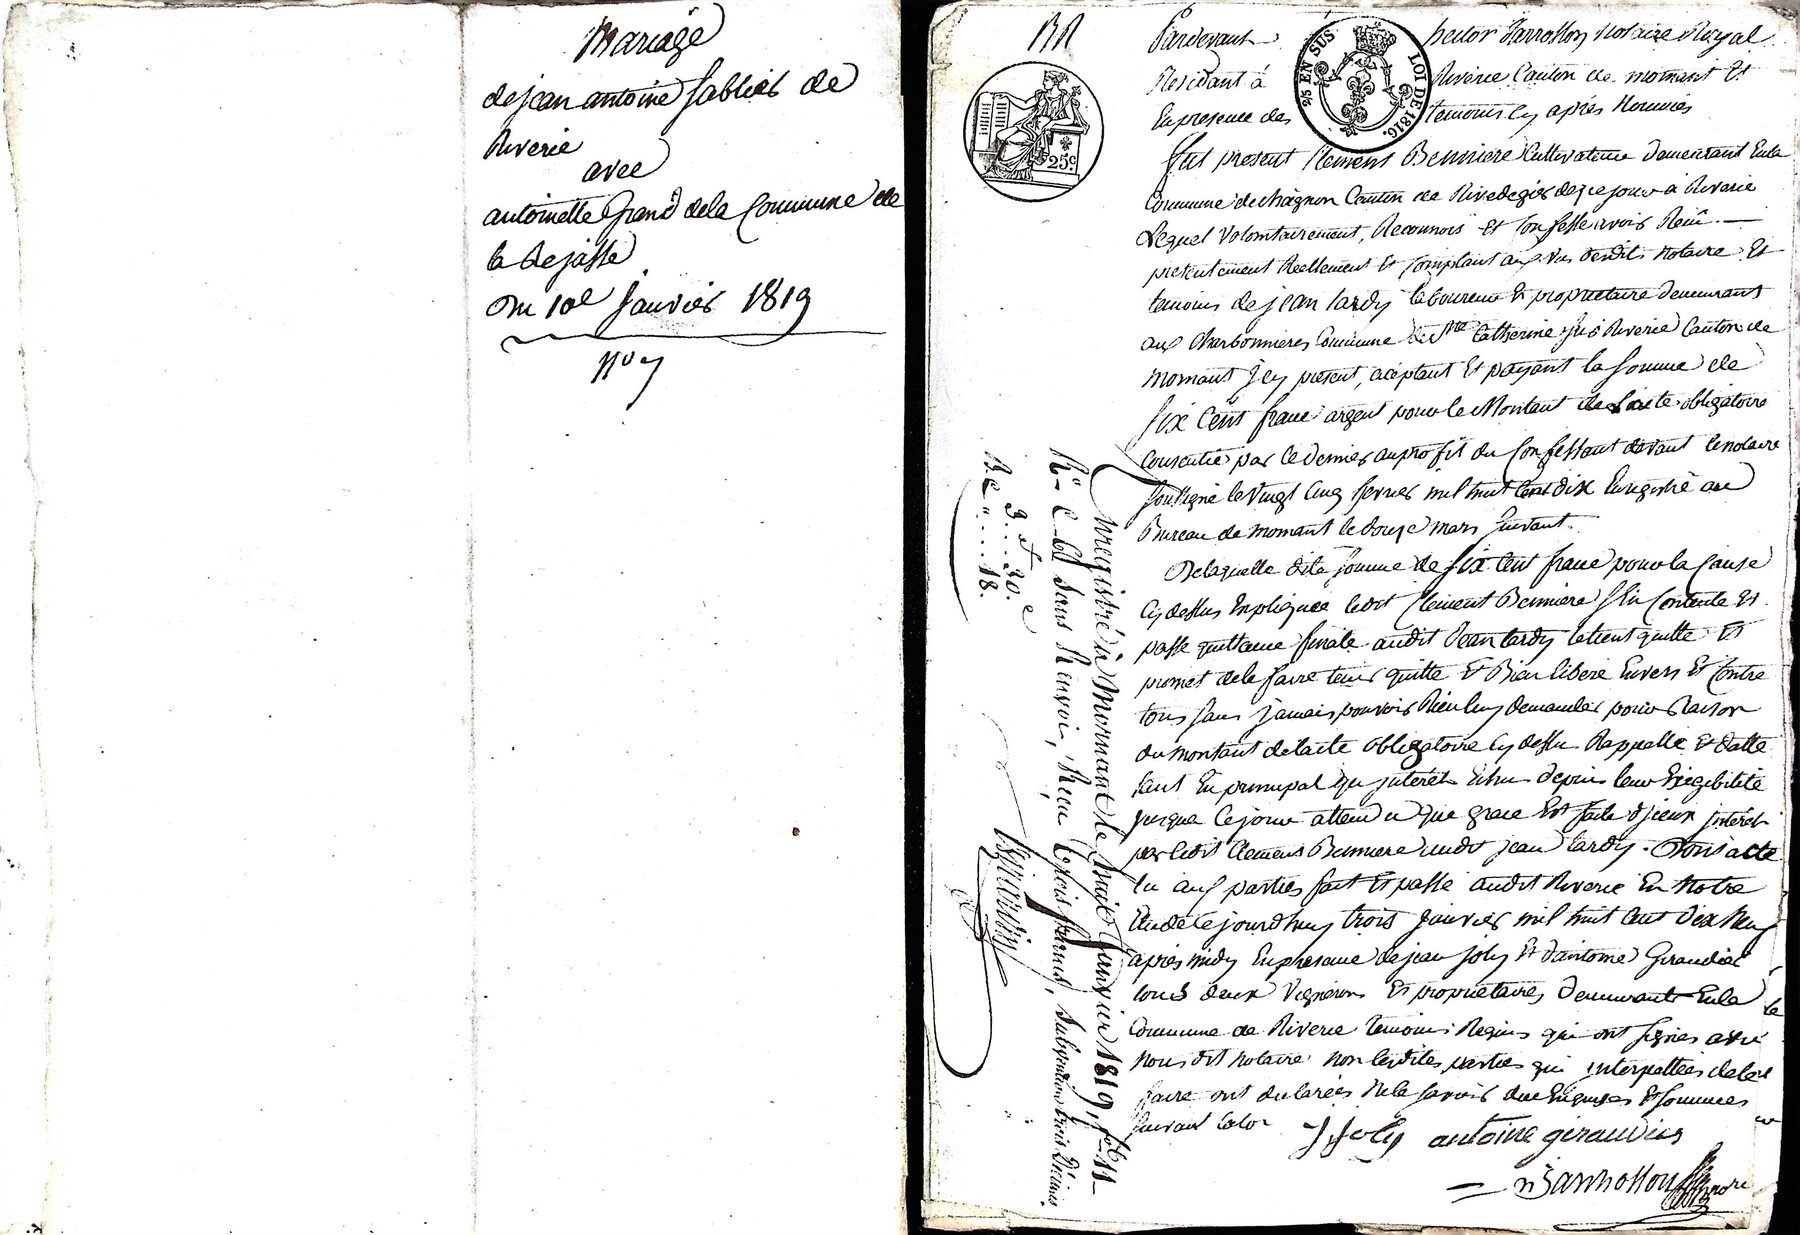 Mariage
de jean antoine sablier de
Riverie
avec
antoinette Grand de la Commune de
la Rejasse
Du 10e janvier 1819
no 7
Pardevant hector Barrollon Notaire Royal
Residant à Riverie Canton de mornant Et
En presence des temoins Cy après Nommés
fut present Clement Bemiere Cultivateur demeurant En la
Commune de chagnon Canton de Rivedegier de ce jour à Riverie
Lequel volontairement, Reconnois Et Confesse avoir Reçu
presentement Reellement Et Comptant aux vu desdits notaire Et
temoins de jean tardy laboureur Et proprietaire demeurant
aux Charbonnieres Commune de Ste Catherine sur Riverie Canton de
mornant Jcy present, aceptant Et payant la somme de
six Cent franc argent pour le Montant de lacte obligatoire
Consentie par ce dernier au profit du Confessant devant le notaire
soussigné le vingt Cinq fevrier mil huit Cent dix Enregistré au
Bureau de mornant le douze mars suivant.
De laquelle dite somme de six Cent franc pour la Cause
Cy dessus Expliquée ledit Clement Bemiere sEn Contente Et
passe quittance finale audit Jean tardy le tient quitte Et
promet de le faire tenir quitte Et Bien libere Envers Et Contre
tous sans jamais pouvoir Rien luy demander pour Raison
du montant de lacte obligatoire Cy dessus Rappelle Et datte
tant En principal qu jnterêt Echu depuis leur Exigibilité
jusque Ce jour attendu que grace Est faite djceux jnterêt
par ledit Clement Bemiere audit jean tardy. Dont acte
lu aux parties fait Et passé audit Riverie En Notre
Etude Cejourdhuy trois janvier mil huit Cent dix neuf
après midy En presence de jean joly Et dantoine Giraudier
tous deux Vignerons Et proprietaires demeurants En la
Commune de Riverie temoins Requis qui ont signes avec
Nous dit notaire non lesdites parties qui jnterpellées de le
faire ont declarées ne le savoir due Enquises Et sommees
suivant la loi
J joly antoine giraudier
Barrollon
Notre
2/5 EN SUS LOI DE 1816.
25c.
Enregistré à Mornant le huit Janvier 1819, fo 11
Ro C. 6 sans Renvoi, Reçu trois francs, subvention trente Décimes
3 f 30 c
18.